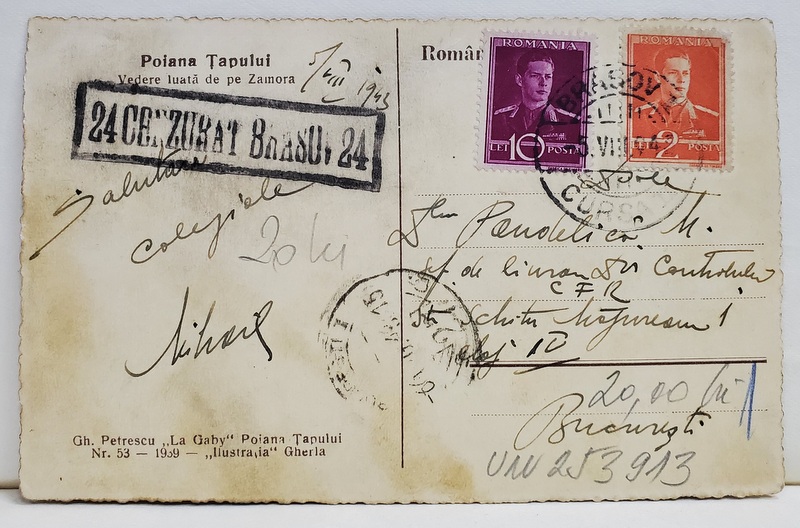 Poiana Țapului
Vedere luată de pe Zamora
5/VIII 1943
24 CENZURAT BRASOV 24
Salutări
colegiale
20 lei
Mihail
Gh. Petrescu „La Gaby" Poiana Țapului
Nr. 53 — 1939 — „Ilustrația" Gherla
Român
ROMANIA
LEI 10 POSTA
ROMANIA
LEI 2 POSTA
BRASOV
CURSA
Dlui Pandelică M.
Șef de birou
Controlului
C F R
Str. Chitu Măgureanu 1
etaj IV
București
20,00 lei
UW 253913